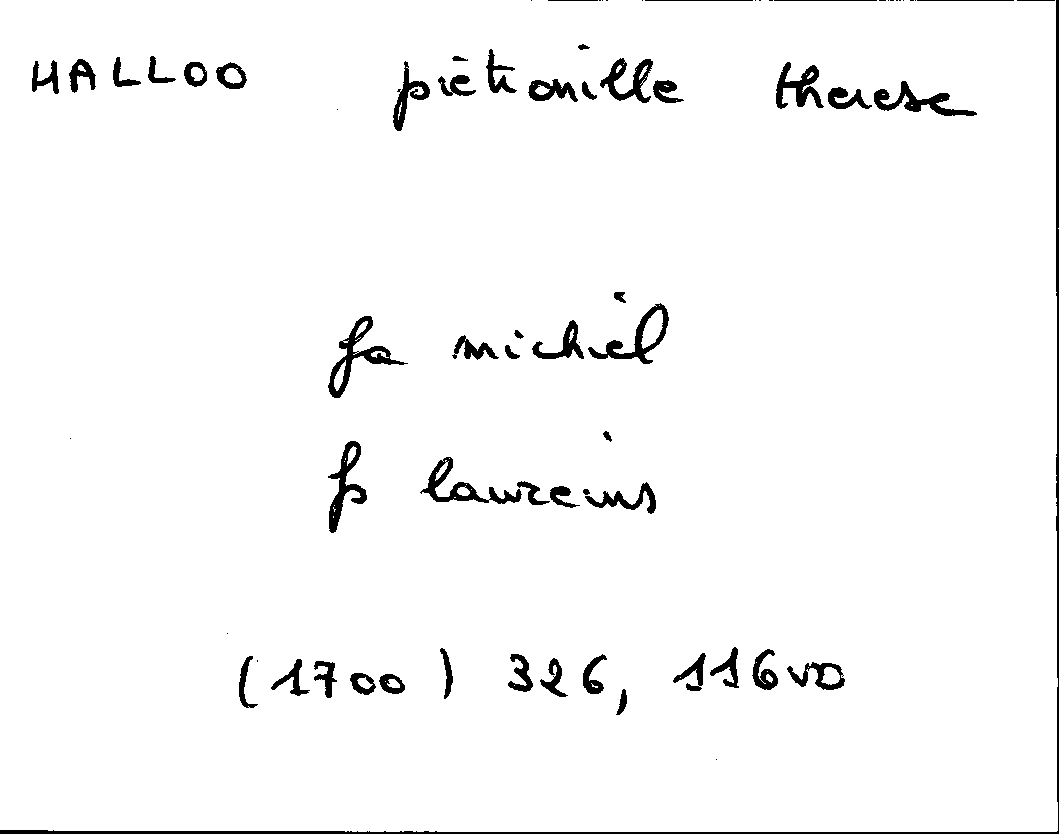 HALLOO piètronille therese
fa michiel
fs laureins
(1700) 326, 116vo